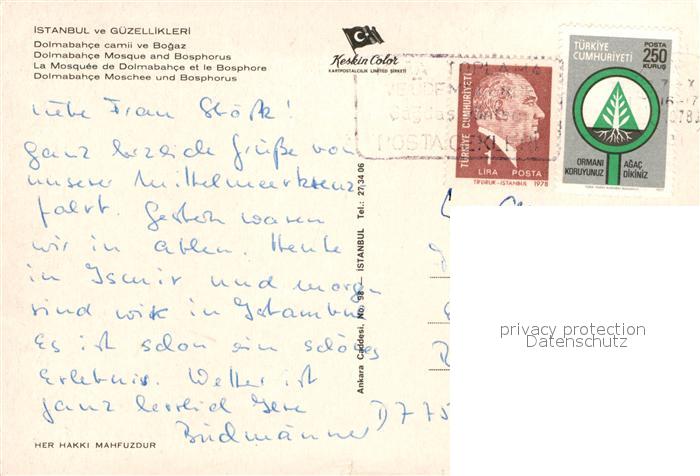 İSTANBUL ve GÜZELLİKLERİ
Dolmabahçe camii ve Boğaz
Dolmabahçe Mosque and Bosphorus
La Mosquée de Dolmabahçe et le Bosphore
Dolmabahçe Moschee und Bosphorus
Keskin Color
KARTPOSTALCILIK LIMITED ŞİRKETİ
TÜRKİYE CUMHURİYETİ
1
LİRA POSTA
TİFDRUK-İSTANBUL 1978
TÜRKİYE
CUMHURİYETİ
POSTA
250
KURUŞ
ORMANI
KORUYUNUZ
AĞAÇ
DİKİNİZ
Liebe Frau
ganz herzliche Grüße von
unserer Mittelmeerkreuz
fahrt. Gestern waren
wir in Athen. Heute
in Ismir und morgen
sind wir in Istambul
Es ist schon ein schönes
Erlebnis. Wetter ist
ganz herrlich Ihre
D 775
Ankara Caddesi, No. 98 — İSTANBUL Tel.: 27 34 06
HER HAKKI MAHFUZDUR
privacy protection
Datenschutz